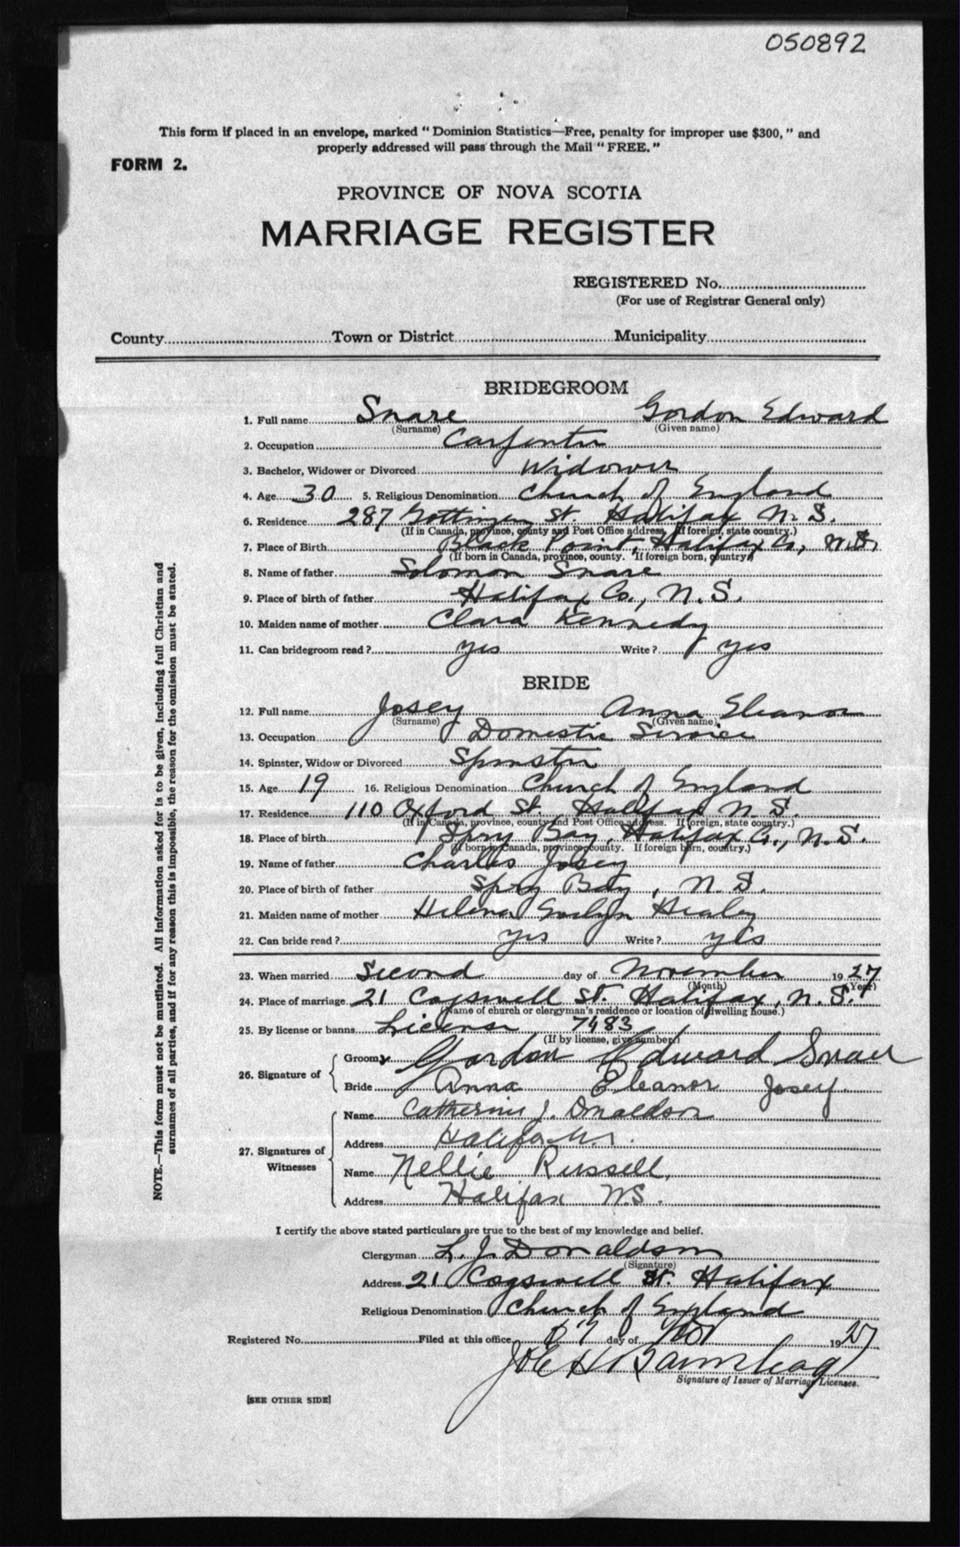 050892
This form if placed in an envelope, marked "Dominion Statistics—Free, penalty for improper use $300," and
properly addressed will pass through the Mail "FREE."
FORM 2.
PROVINCE OF NOVA SCOTIA
MARRIAGE REGISTER
REGISTERED No.
(For use of Registrar General only)
County Town or District Municipality
BRIDEGROOM
1. Full name Snare Gordon Edward
(Surname) (Given name)
2. Occupation Carpenter
3. Bachelor, Widower or Divorced Widower
4. Age 30 5. Religious Denomination Church of England
6. Residence 287 Gottingen St. Halifax N. S.
(If in Canada, province, county and Post Office address. If foreign, state country.)
7. Place of Birth Black Point, Halifax Co., N.S.
(If born in Canada, province, county. If foreign born, country)
8. Name of father Solomon Snare
9. Place of birth of father Halifax Co., N.S.
10. Maiden name of mother Clara Kennedy
11. Can bridegroom read? yes Write? yes
BRIDE
12. Full name Josey Anna Eleanor
(Surname) (Given name)
13. Occupation Domestic Service
14. Spinster, Widow or Divorced Spinster
15. Age 19 16. Religious Denomination Church of England
17. Residence 110 Oxford St. Halifax N. S.
(If in Canada, province, county and Post Office address. If foreign, state country.)
18. Place of birth Spry Bay, Halifax Co., N.S.
(If born in Canada, province, county. If foreign born, country.)
19. Name of father Charles Josey
20. Place of birth of father Spry Bay, N. S.
21. Maiden name of mother Helena Evelyn Healey
22. Can bride read? yes Write? yes
23. When married Second day of November 1927
(Month) (Year)
24. Place of marriage 21 Cogswell St. Halifax, N. S.
(Name of church or clergyman's residence or location of dwelling house.)
25. By license or banns License 7483
(If by license, give number)
26. Signature of
Groom Gordon Edward Snair
Bride Anna Eleanor Josey
27. Signatures of Witnesses
Name Catherine J. Donaldson
Address Halifax N.S.
Name Nellie Russell
Address Halifax N.S.
I certify the above stated particulars are true to the best of my knowledge and belief.
Clergyman L. J. Donaldson
(Signature)
Address 21 Cogswell St. Halifax
Religious Denomination Church of England
Registered No. Filed at this office day of Nov 1927
Signature of Issuer of Marriage Licenses.
[SEE OTHER SIDE]
NOTE.—This form must not be mutilated. All information asked for is to be given, including full Christian and
surnames of all parties, and if for any reason this is impossible, the reason for the omission must be stated.